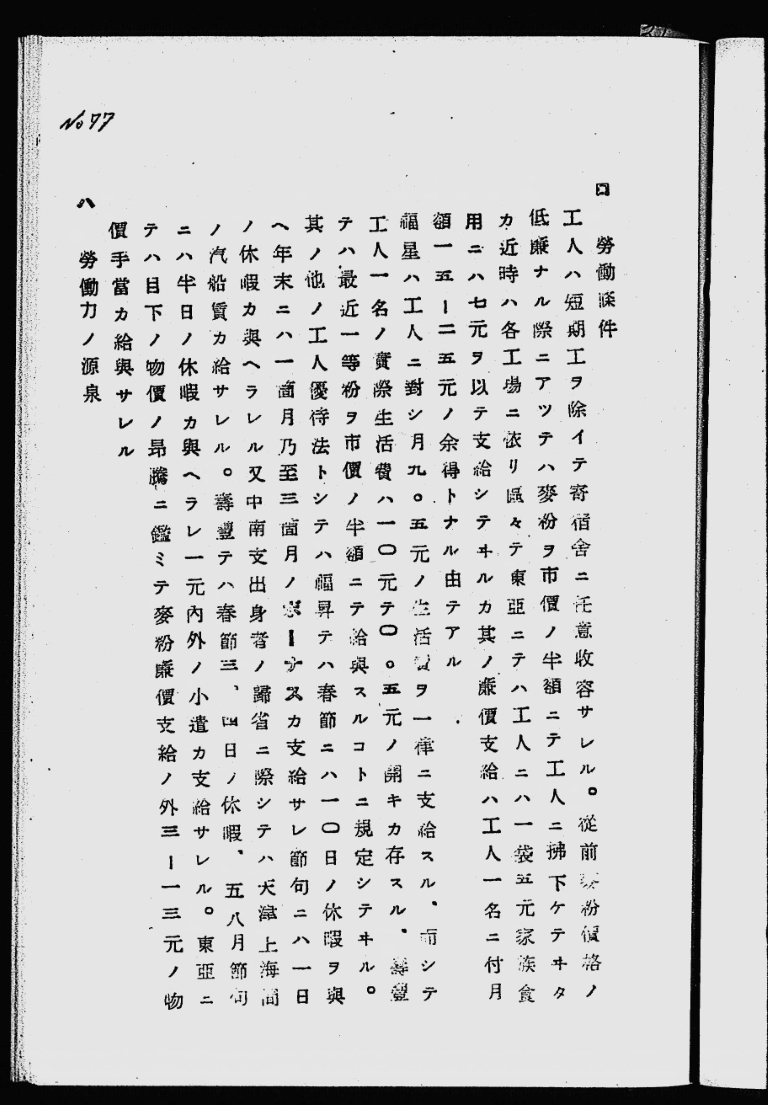 No 77
ロ 勞働條件
工人ハ短期工ヲ除イテ寄宿舍ニ任意收容サレル。從前麥粉價格ノ
低廉ナル際ニアツテハ麥粉ヲ市價ノ半額ニテ工人ニ拂下ケテヰタ
カ近時ハ各工場ニ依リ區々テ東亞ニテハ工人ニハ一袋五元家族食
用ニハ七元ヲ以テ支給シテヰルカ其ノ廉價支給ハ工人一名ニ付月
額一五ー二五元ノ余得トナル由テアル
福星ハ工人ニ對シ月九。五元ノ生活費ヲ一律ニ支給スル、而シテ
工人一名ノ實際生活費ハ一〇元テ〇。五元ノ開キカ存スル、壽豐
テハ最近一等粉ヲ市價ノ半額ニテ給與スルコトニ規定シテヰル。
其ノ他ノ工人優待法トシテハ福昇テハ春節ニハ一〇日ノ休暇ヲ與
ヘ年末ニハ一箇月乃至三箇月ノボーナスカ支給サレ節句ニハ一日
ノ休暇カ與ヘラレル又中南支出身者ノ歸省ニ際シテハ天津上海間
ノ汽船賃カ給サレル。壽豐テハ春節三、四日ノ休暇、五八月節句
ニハ半日ノ休暇カ與ヘラレ一元內外ノ小遣カ支給サレル。東亞ニ
テハ目下ノ物價ノ昂騰ニ鑑ミテ麥粉廉價支給ノ外三ー一三元ノ物
價手當カ給與サレル
ハ 勞働力ノ源泉